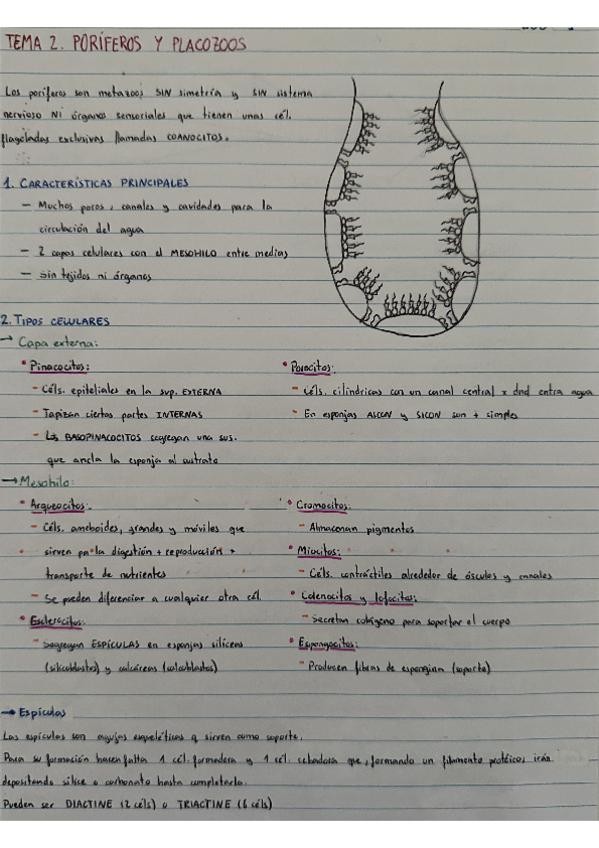 TEMA 2. PORÍFEROS Y PLACOZOOS
Los poríferos son metazoos SIN simetría y SIN sistema
nervioso NI órganos sensoriales que tienen unas cél.
flageladas exclusivas llamadas COANOCITOS.
1. CARACTERÍSTICAS PRINCIPALES
- Muchos poros, canales y cavidades para la
circulación del agua
- 2 capas celulares con el MESOHILO entre medias
- Sin tejidos ni órganos
2. TIPOS CELULARES
→ Capa externa:
• Pinacocitos:
- Céls. epiteliales en la sup. EXTERNA
- Tapizan ciertas partes INTERNAS
- Los BASOPINACOCITOS segregan una sus.
que ancla la esponja al sustrato
• Porocitos:
- Céls. cilíndricas con un canal central x dnd entra agua
- En esponjas ASCON y SICON son + simples
→ Mesohilo:
• Arqueocitos:
- Céls. ameboides, grandes y móviles que
sirven pa la digestión + reproducción +
transporte de nutrientes
- Se pueden diferenciar a cualquier otra cél.
• Esclerocitos:
- Segregan ESPÍCULAS en esponjas silíceas
(silicoblastos) y calcáreas (calcoblastos)
• Cromocitos:
- Almacenan pigmentos
• Miocitos:
- Céls. contráctiles alrededor de ósculos y canales
• Colenocitos y lofocitos:
- Secretan colágeno para soportar el cuerpo
• Espongocitos:
- Producen fibras de espongina (soporte)
→ Espículas
Las espículas son agujas esqueléticas q sirven como soporte.
Para su formación hacen falta 1 cél. formadora y 1 cél. cebadora que, formando un filamento protéico irán
depositando sílice o carbonato hasta completarlo.
Pueden ser DIACTINE (2 céls) o TRIACTINE (6 céls)